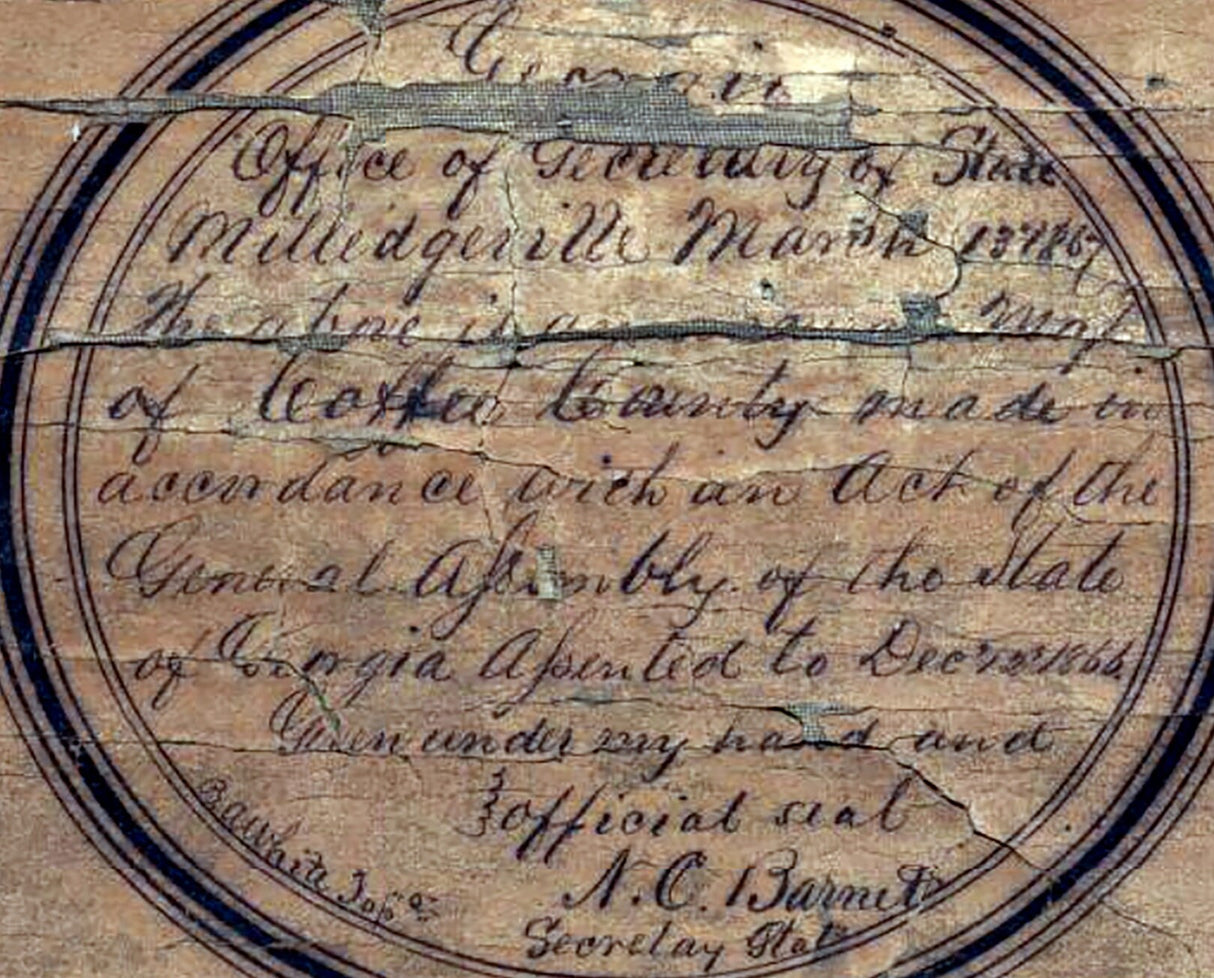 Georgia
Office of Secretary of State
Milledgeville March 13 1867
The above is a Map
of Coffee County made in
accordance with an Act of the
General Aſsembly of the State
of Georgia Aſsented to Decr 1866.
Given under my hand and
official seal
N. C. Barnett
Secretay State
BawWhite